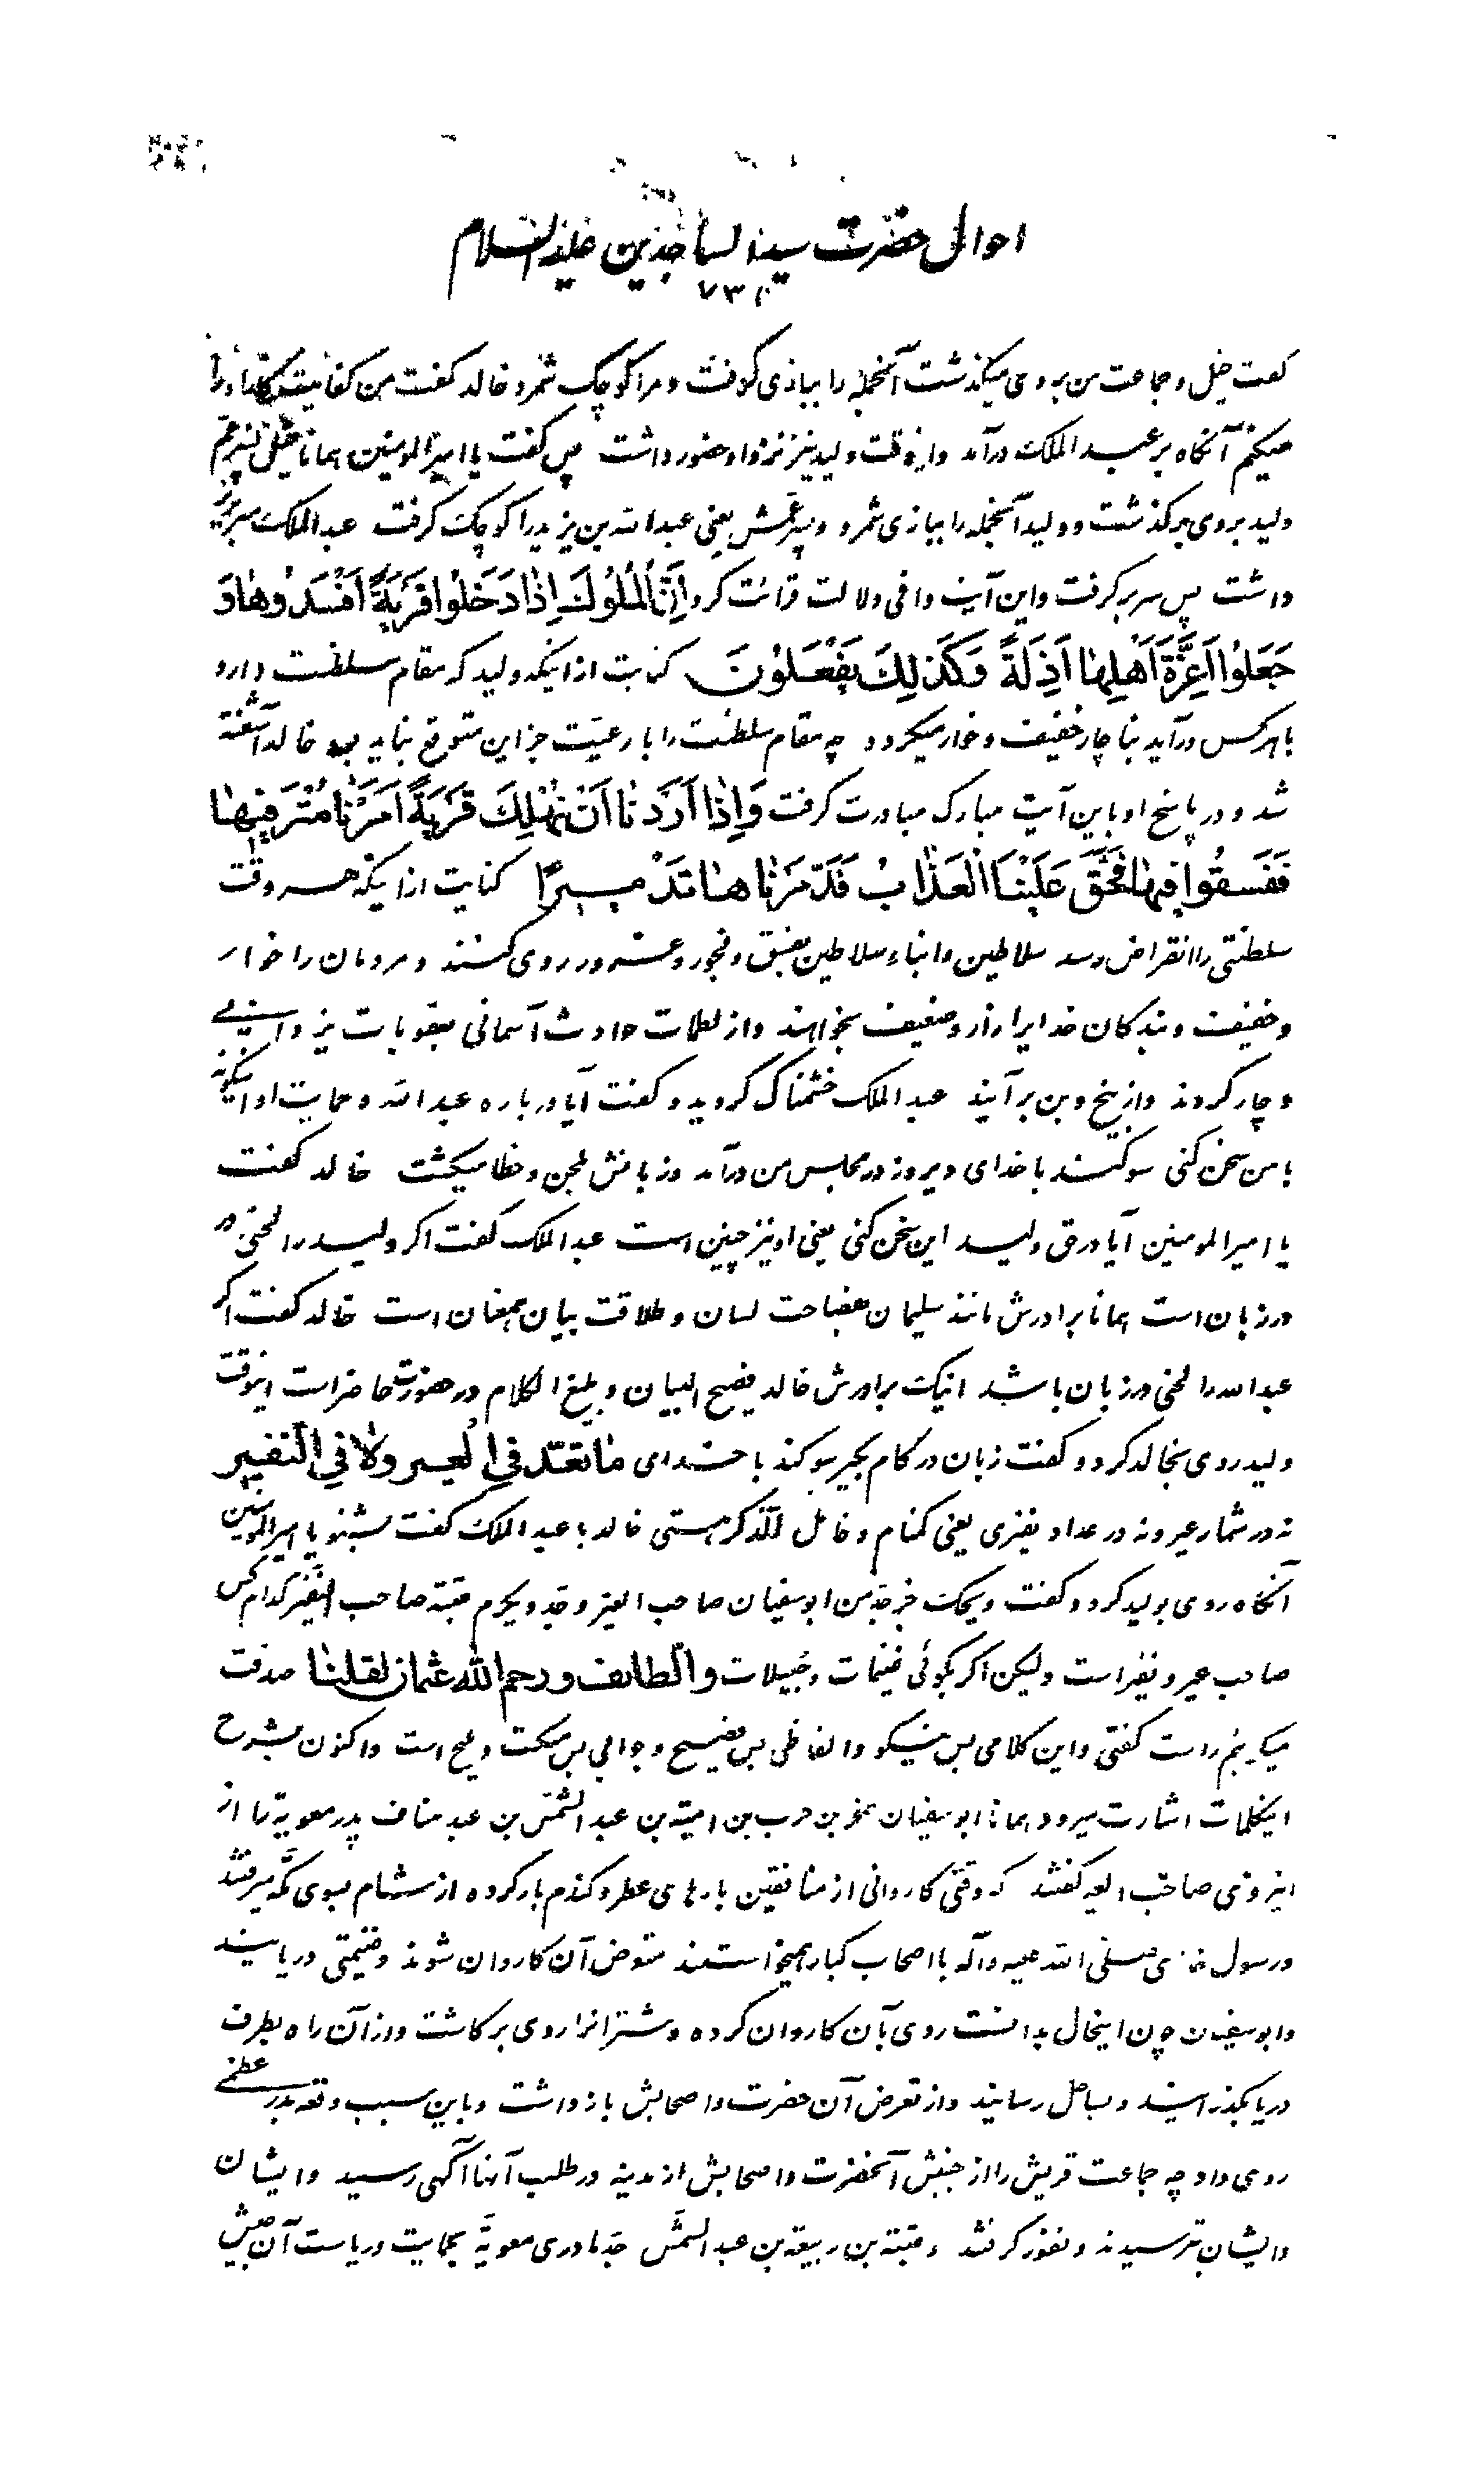 احوال حضرت سید الساجدین علیه السلام
۷۳۸
گفت خیل و جماعت من بروی میگذشت آنجمله را ببازی گرفت و مرا کوچک شمرد خالد گفت من کفایت
میکنم آنگاه بر عبد الملک درآمد و اینوقت ولید نیز نزد او حضور داشت پس گفت یا امیر المومنین همانا خیل پسر عم
ولید بروی برگذشت و ولید آنجمله را ببازی شمرد و پسر عمش یعنی عبدالله بن یزید را کوچک گرفت عبدالملک سر بزیر
داشت پس سر برگرفت و این آیت وافی دلالت قرائت کرد اِنَّ الْمُلُوكَ اِذٰا دَخَلُوا قَرْيَةً اَفْسَدُوهٰا وَ
جَعَلُوا اَعِزَّةَ اَهْلِهٰا اَذِلَّةً وَكَذٰلِكَ يَفْعَلُونَ کنایت از اینکه ولید که مقام سلطنت دارد
با هر کس درآید بناچار خفیف و خوار میگردد چه مقام سلطنت را با رعیت جز این متوقع نباید بود خالد آشفته
شد و در پاسخ او باین آیت مبارک مبادرت گرفت وَاِذٰا اَرَدْنٰا اَنْ نُهْلِكَ قَرْيَةً اَمَرْنٰا مُتْرَفِيهٰا
فَفَسَقُوا فِيهٰا فَحَقَّ عَلَيْنَا الْعَذٰابُ فَدَمَّرْنٰاهٰا تَدْمِيرًا کنایت از اینکه هر وقت
سلطنتی را انقراض رسد سلاطین و ابناء سلاطین بفسق و فجور و غرور روی کنند و مردمان را خوار
و خفیف و بندگان خدایرا زار و ضعیف بخواهند و از لطمات حوادث آسمانی بعقوبات یزدانی
دچار گردند و از بیخ و بن برآیند عبد الملک خشمناک گردید و گفت آیا درباره عبدالله و حمایت او اینگونه
با من سخن کنی سوگند با خدای دیروز در مجلس من درآمد و زبانش بلحن و خطا میگشت خالد گفت
یا امیر المومنین آیا در حق ولید این سخن کنی یعنی او نیز چنین است عبد الملک گفت اگر ولید را لحنی در
در زبان است همانا برادرش مانند سلیمان بفصاحت لسان و طلاقت بیان همعنان است خالد گفت اگر
عبدالله را لحنی در زبان باشد اینک برادرش خالد فصیح البیان و بلیغ الکلام در حضورت حاضر است اینوقت
ولید روی بخالد کرد و گفت زبان در کام بگیر سوگند با خدای مٰا تعدّ فی العیر ولٰا فی النفیر
نه در شمار عیر و نه در عداد نفیری یعنی گمنام و خامل الذکر هستی خالد با عبد الملک گفت بشنو یا امیر المومنین
آنگاه روی بولید کرد و گفت ویحک جز جد من ابوسفیان صاحب العیر و جد دیگرم عتبة صاحب النفیر کدام کس
صاحب عیر و نفیر است ولیکن اگر بگوئی غنیمات و حبیلات و الطایف و رحم الله عثمان لقلنٰا صدقت
میگوئیم راست گفتی و این کلامی بس نیکو و الفاظی بس فصیح و جوابی بس مسکت و ملیح است و اکنون بشرح
اینکلمات اشارت میرود همانا ابوسفیان صخر بن حرب بن امیة بن عبد الشمس بن عبد مناف پدر معویة را از
اینروی صاحب العیر گفتند که وقتی کاروانی از منافقین بارهای عطر و گندم بار کرده از شام بسوی مکه میرفتند
و رسول خدای صلی الله علیه و آله با اصحاب کبار همیخواستند متعرض آن کاروان شوند و غنیمتی دریابند
و ابوسفیان چون اینحال بدانست روی بآن کاروان کرده و شترانرا روی برگاشت و از آن راه بطرف
دریا بگذرانید و بساحل رسانید و از تعرض آن حضرت و اصحابش باز داشت و باین سبب وقعه بدر عظمی
روی داد چه جماعت قریش را از جنبش آنحضرت و اصحابش از مدینه در طلب آنها آگهی رسید و ایشان
و ایشان بترسیدند و نفور گرفتند و عتبة بن ربیعة بن عبد الشمس جد مادری معویة بحمایت و ریاست آن جیش